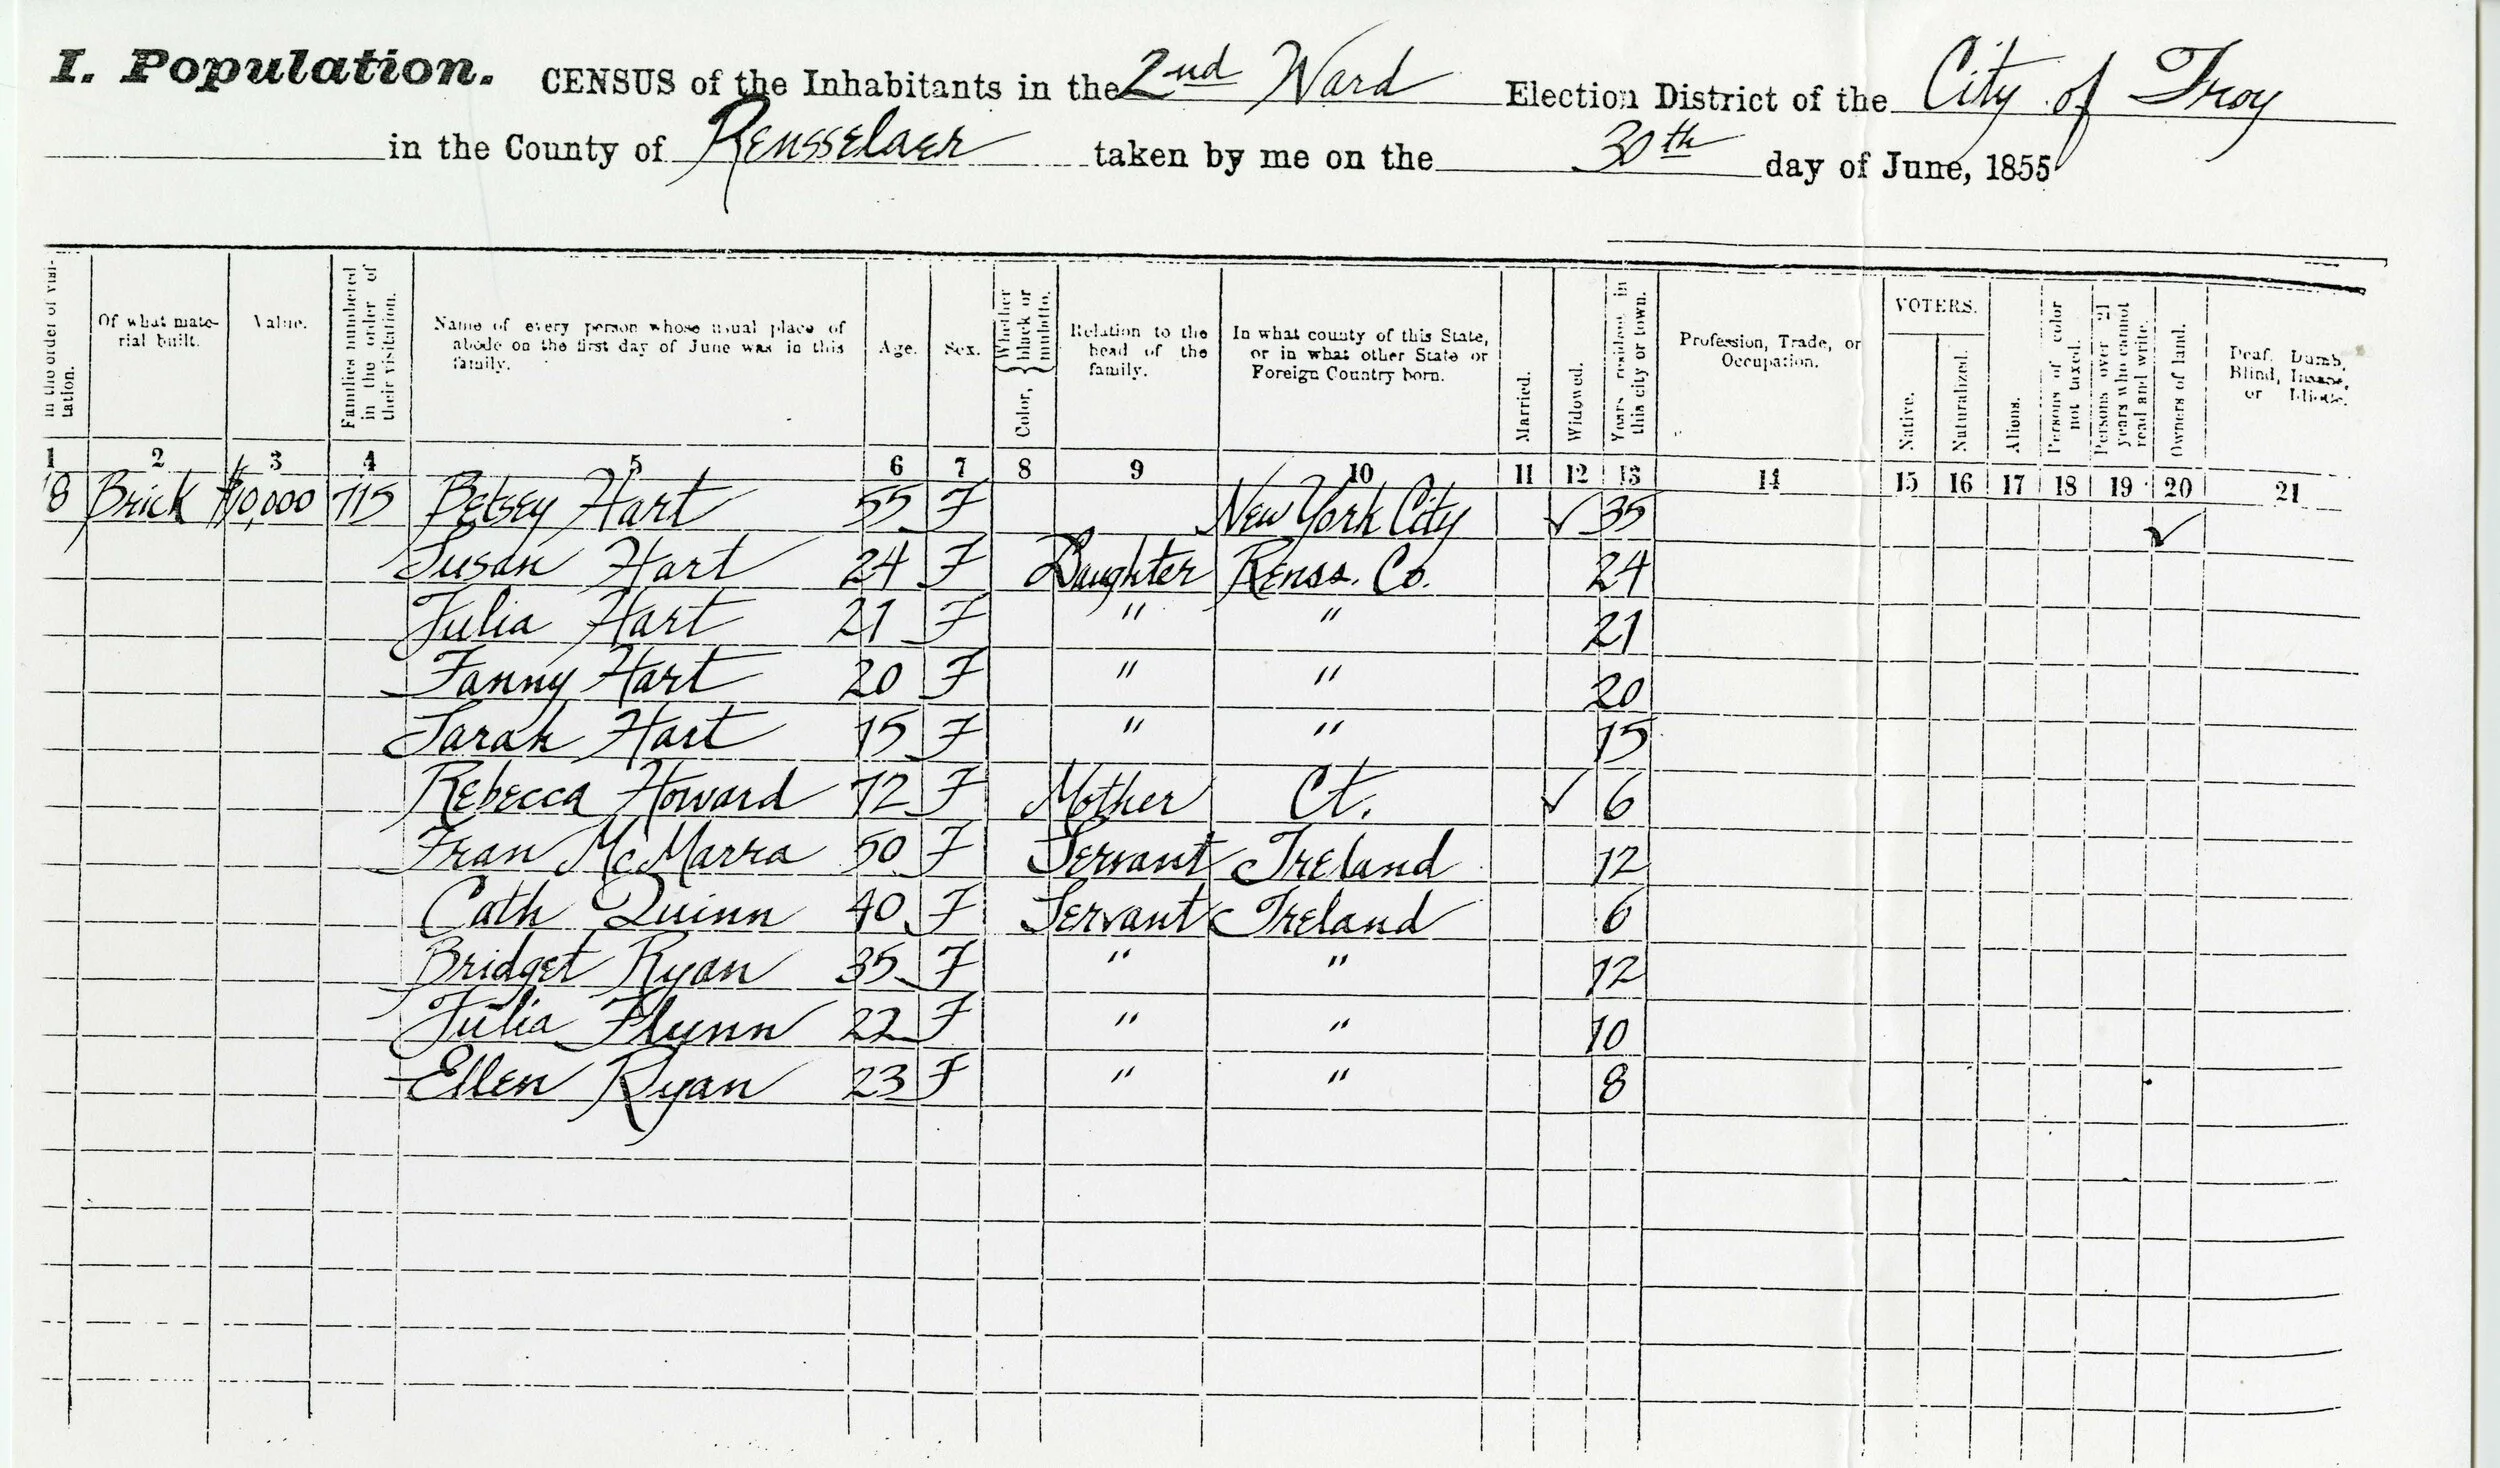 I. Population. CENSUS of the Inhabitants in the 2nd Ward Election District of the City of Troy
in the County of Rensselaer taken by me on the 30th day of June, 1855
in the order of visi-tation.
Of what mate-rial built.
Value.
Families numbered in the order of their visitation.
Name of every person whose usual place of abode on the first day of June was in this family.
Age.
Sex.
Color, { Whether black or mulatto.
Relation to the head of the family.
In what county of this State, or in what other State or Foreign Country born.
Married.
Widowed.
Years resident in this city or town.
Profession, Trade, or Occupation.
VOTERS.
Native.
Naturalized.
Aliens.
Persons of color not taxed.
Persons over 21 years who cannot read and write.
Owners of land.
Deaf, Dumb, Blind, Insane, or Idiotic.
1 2 3 4 5 6 7 8 9 10 11 12 13 14 15 16 17 18 19 20 21
8 Brick $10,000 715 Betsey Hart 55 F New York City ✓ 35 ✓
Susan Hart 24 F Daughter Renss. Co. 24
Julia Hart 21 F " " 21
Fanny Hart 20 F " " 20
Sarah Hart 15 F " " 15
Rebecca Howard 72 F Mother Ct. ✓ 6
Fran McMarra 50 F Servant Ireland 12
Cath Quinn 40 F Servant Ireland 6
Bridget Ryan 35 F " " 12
Julia Flynn 22 F " " 10
Ellen Ryan 23 F " " 8